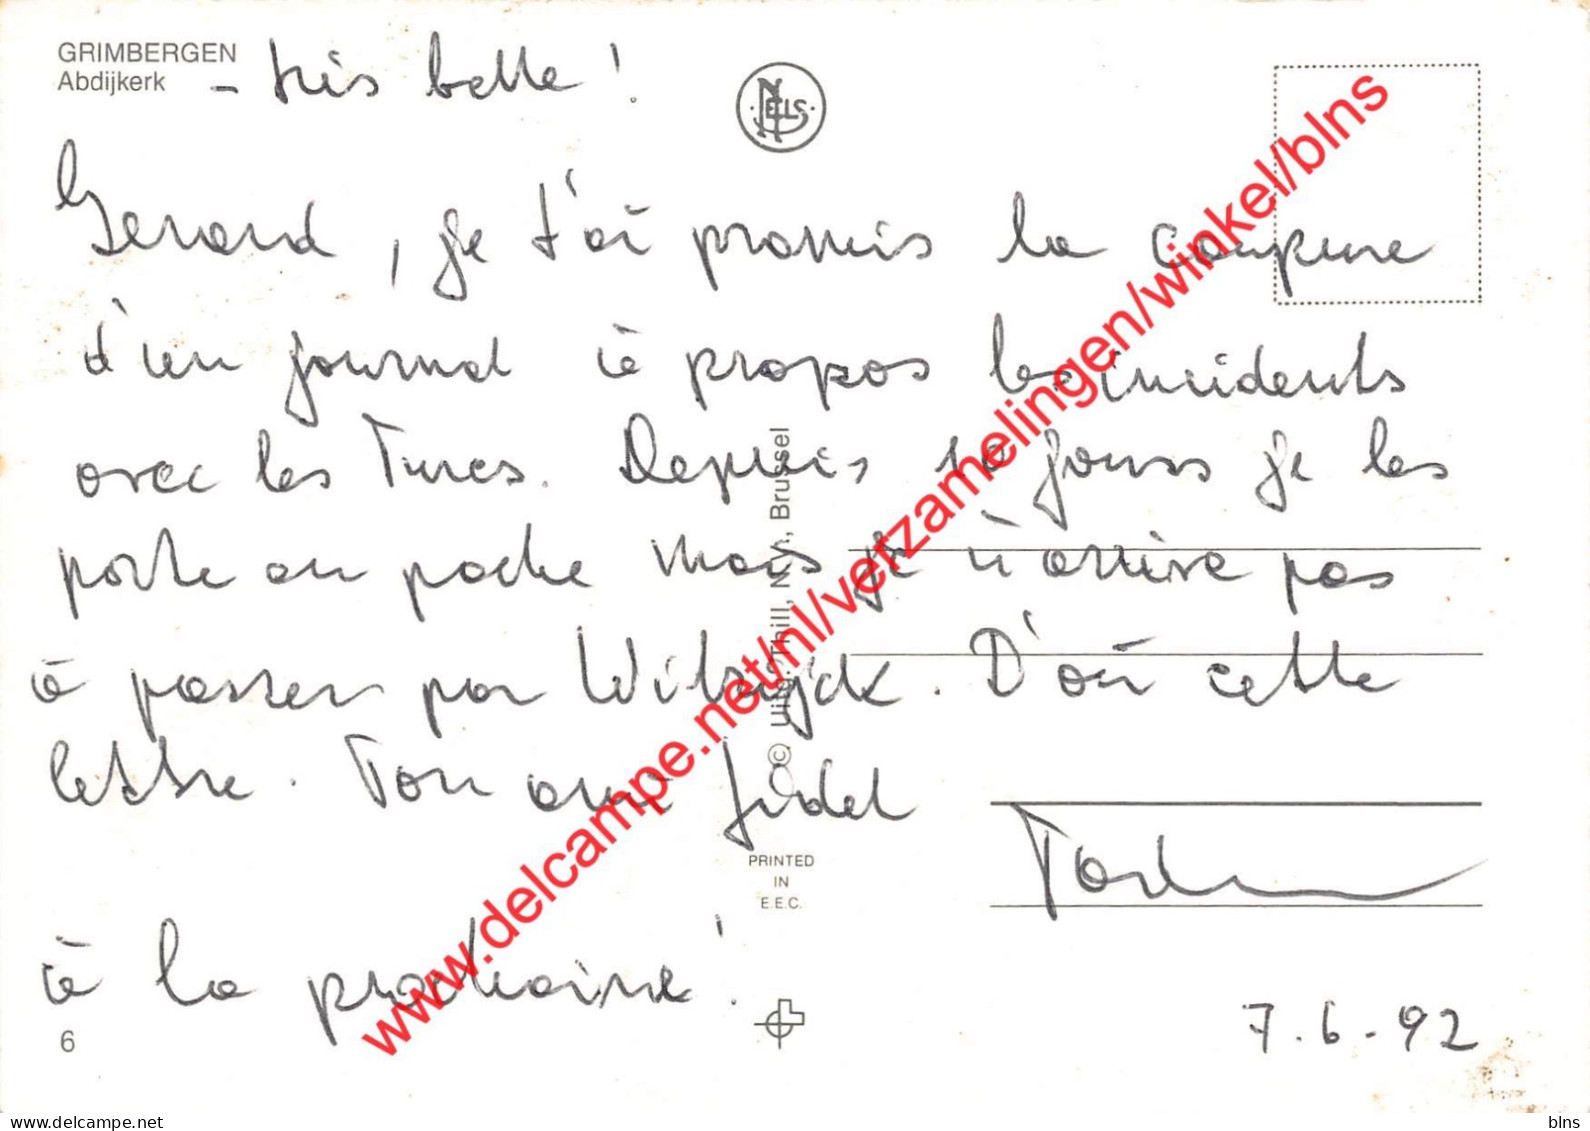 GRIMBERGEN
Abdijkerk
- très belle !
NELS
Gerard, je t'ai promis la coupure
d'un journal à propos les incidents
avec les Turcs. Depuis 10 jours je les
porte en poche mais je n'arrive pas
à passer par Wilrijck. D'où cette
lettre. Ton ami fidel
à la prochaine !
7.6-92
6
© Uitg. Thill, N.V., Brussel
PRINTED
IN
E.E.C.
www.delcampe.net/nl/verzamelingen/winkel/blns
blns